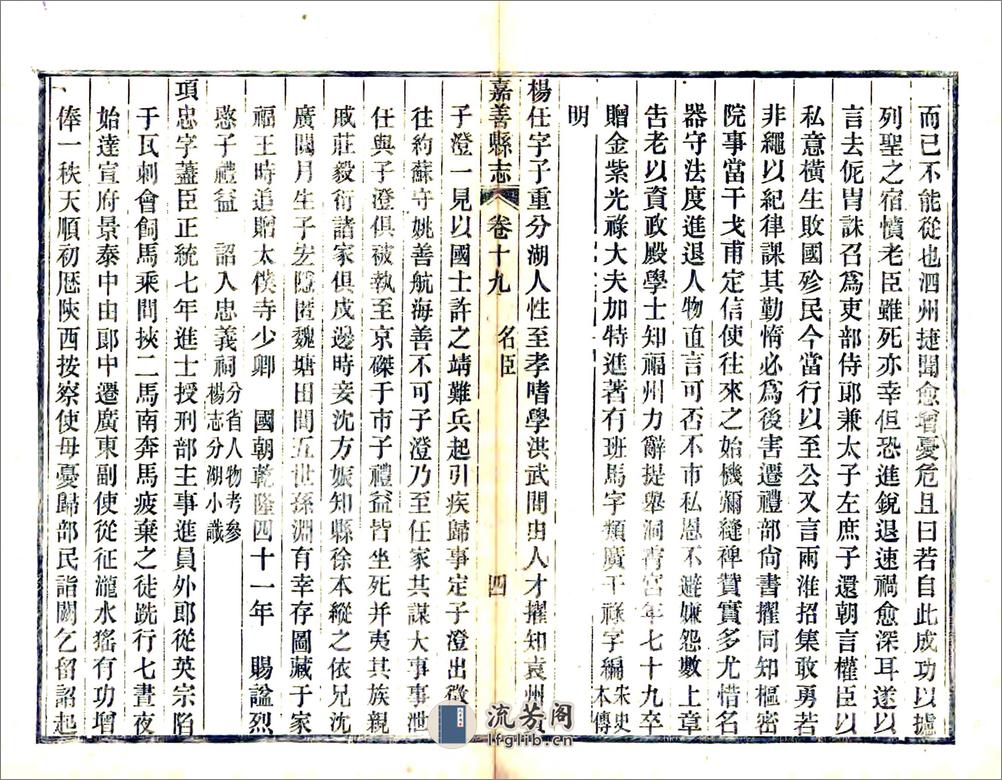 而已不能從也泗州捷聞愈增憂危且曰若自此成功以攄
列聖之宿憤老臣雖死亦幸但恐進銳退速禍愈深耳遂以
言去侂胄誅召爲吏部侍郎兼太子左庶子還朝言權臣以
私意橫生敗國殄民今當行以至公又言兩淮招集敢勇若
非繩以紀律課其勤惰必爲後害遷禮部尙書擢同知樞密
院事當干戈甫定信使往來之始機彌縫裨贊實多尤惜名
器守法度進退人物直言可否不市私恩不避嫌怨數上章
告老以資政殿學士知福州力辭提舉洞霄宮年七十九卒
贈金紫光祿大夫加特進著有班馬字類廣干祿字編宋史本傳
明
楊任字子重分湖人性至孝嗜學洪武間由人才擢知袁州
嘉善縣志 卷十九 名臣 四
子澄一見以國士許之靖難兵起引疾歸事定子澄出徵
往約蘇守姚善航海善不可子澄乃至任家共謀大事事泄
任與子澄俱被執至京磔于市子禮益皆坐死并夷其族親
戚莊毅衍諸家俱戍邊時妾沈方娠知縣徐本縱之依兄沈
廣閱月生子宏隱匿魏塘田間五世孫淵有幸存圖藏于家
福王時追贈太僕寺少卿 國朝乾隆四十一年 賜諡烈
愍子禮益 詔入忠義祠分省人物考參楊志分湖小識
項忠字藎臣正統七年進士授刑部主事進員外郎從英宗陷
于瓦刺會飼馬乘間挾二馬南奔馬疲棄之徒跣行七晝夜
始達宣府景泰中由郎中遷廣東副使從征瀧水猺有功增
俸一秩天順初歷陝西按察使母憂歸部民詣闕乞留詔起
流芳阁
lfglib.cn